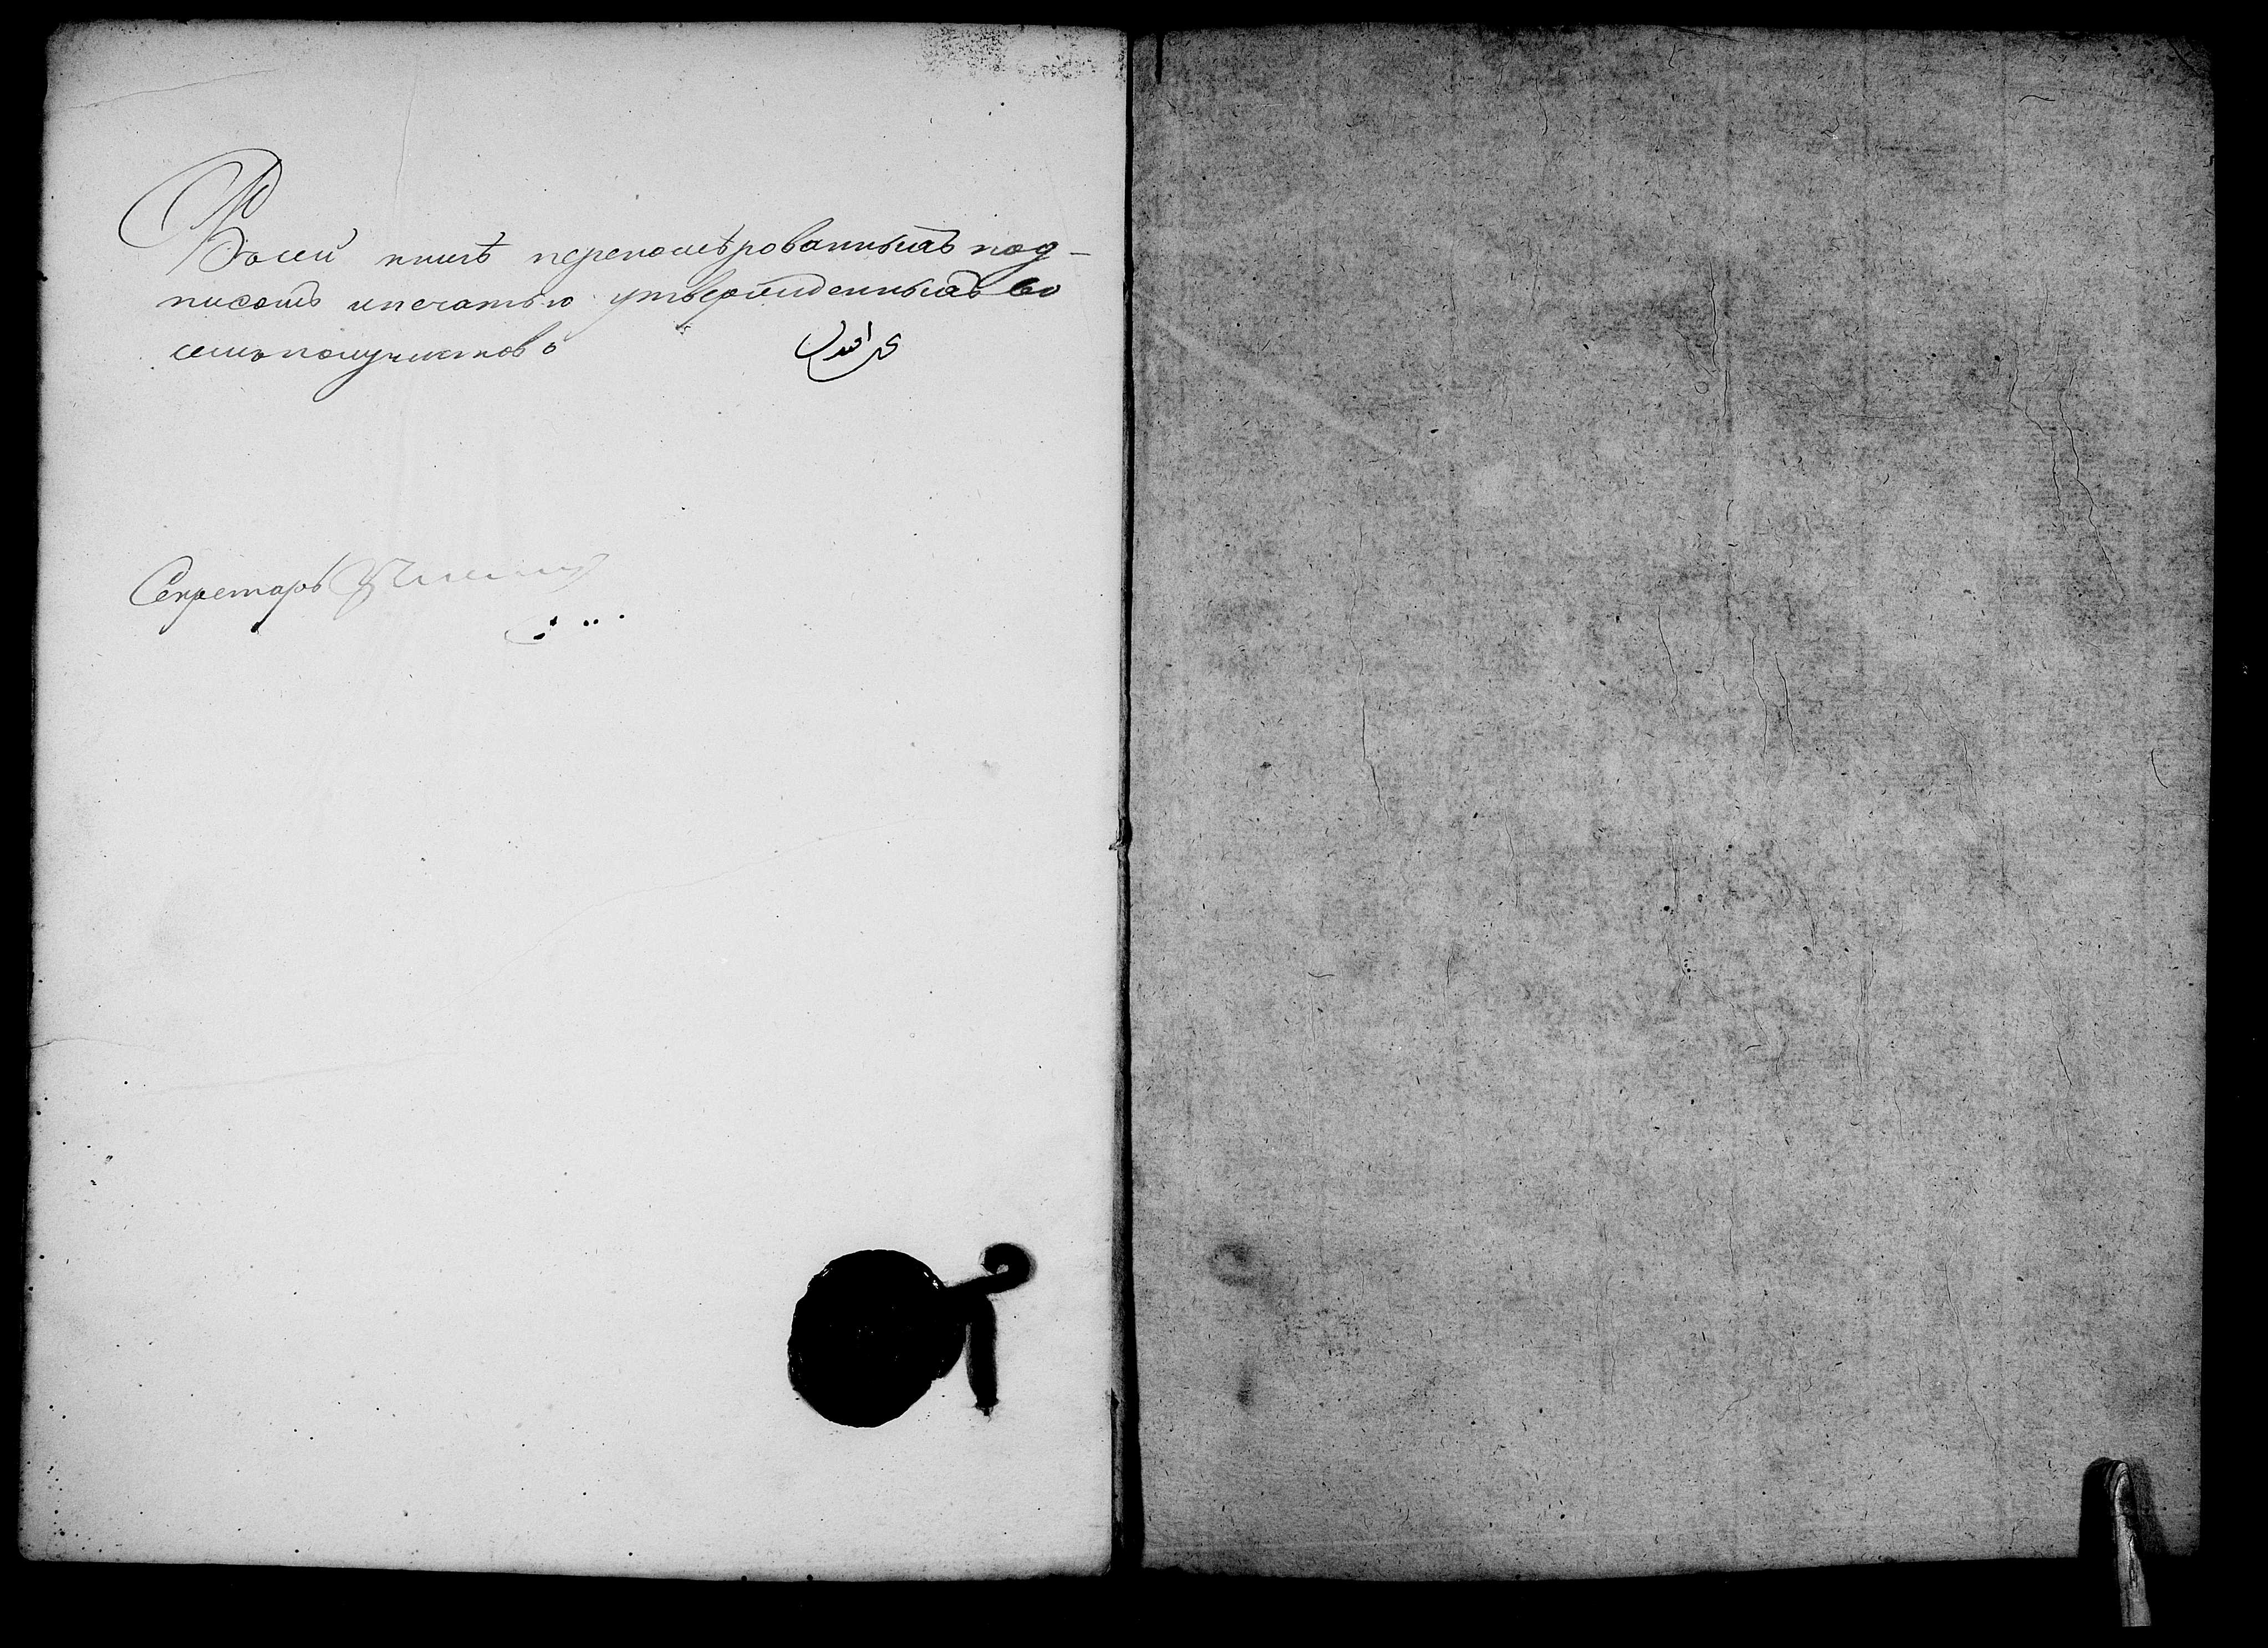 Въ сей книгѣ переномѣрованныхъ под-
писомъ ипечатью утвержденныхъ во
семь полулистовъ
Секретарь